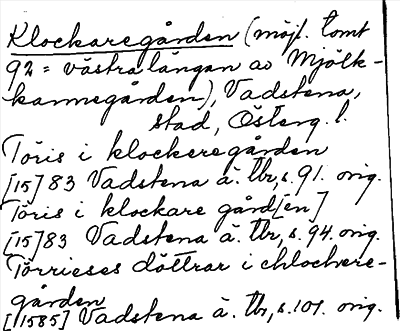 Klockaregården (möjl. tomt
92 = västra längan av Mjölk-
kannegården), Vadstena,
stad, Österg. l.
Töris i klockeregården
[15]83 Vadstena ä. tbr, s. 91. orig.
Töris i klockare gård[en]
[15]83 Vadstena ä. Tbr, s. 94. orig.
Törrieses döttrar i chlochere-
gården
[1585] Vadstena ä. Tb, s. 101. orig.